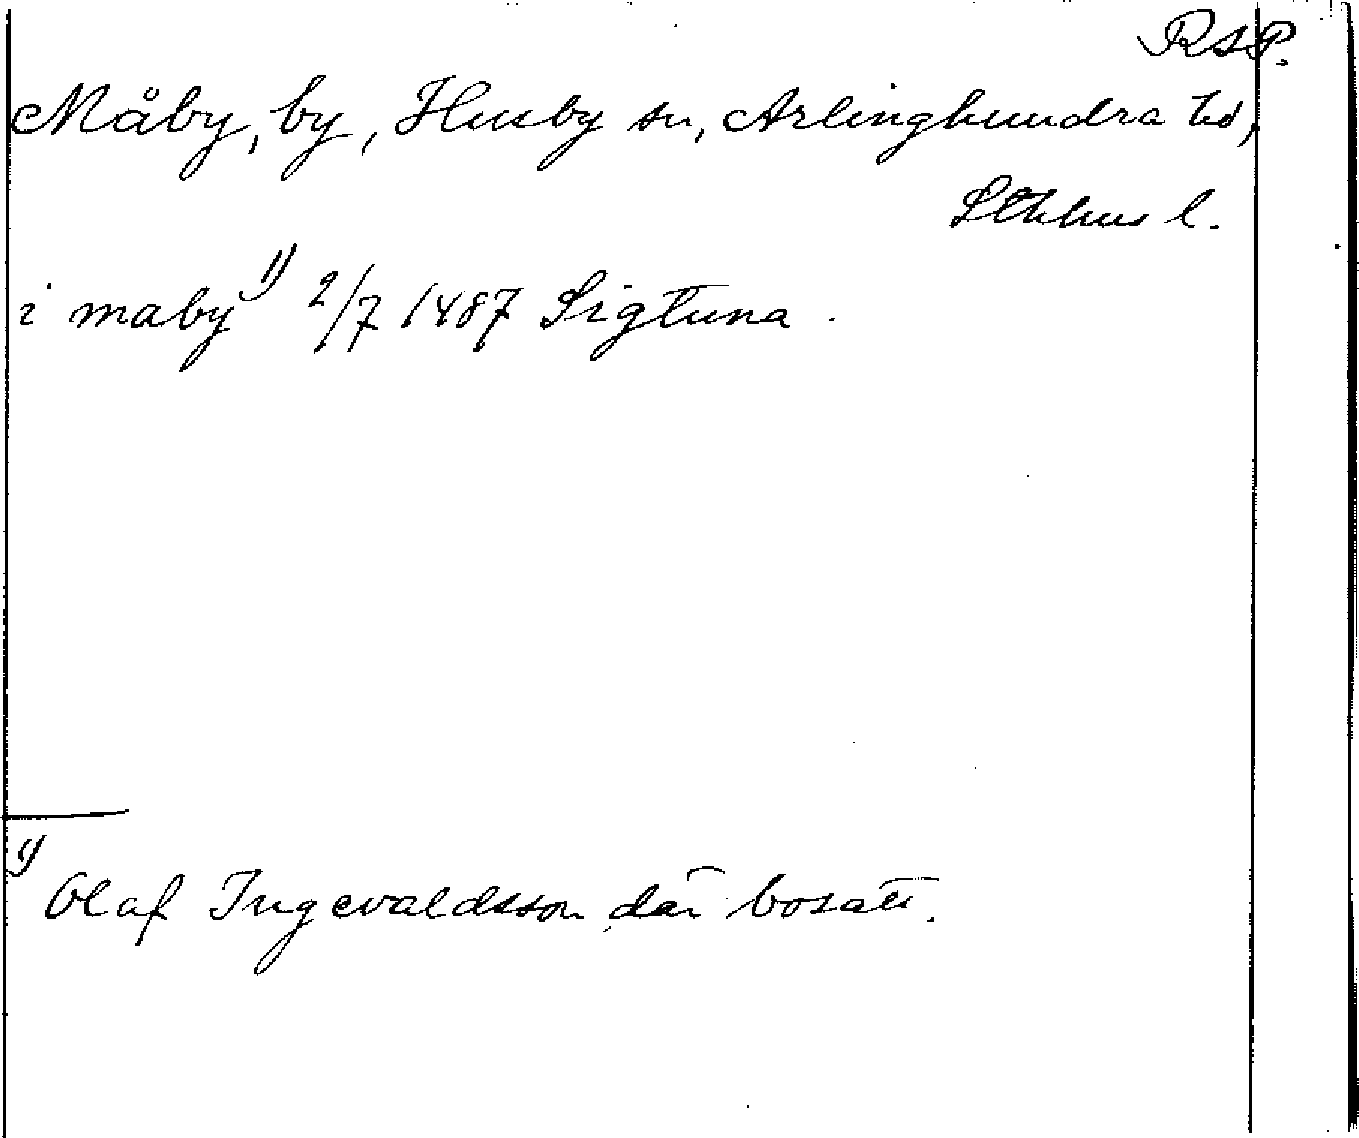 RAP.
Måby, by, Husby sn, Arlinghundra hd,
Sthlms l.
i maby 1) 2/7 1487 Sigtuna.
1) Olaf Ingevaldsson där bosatt.